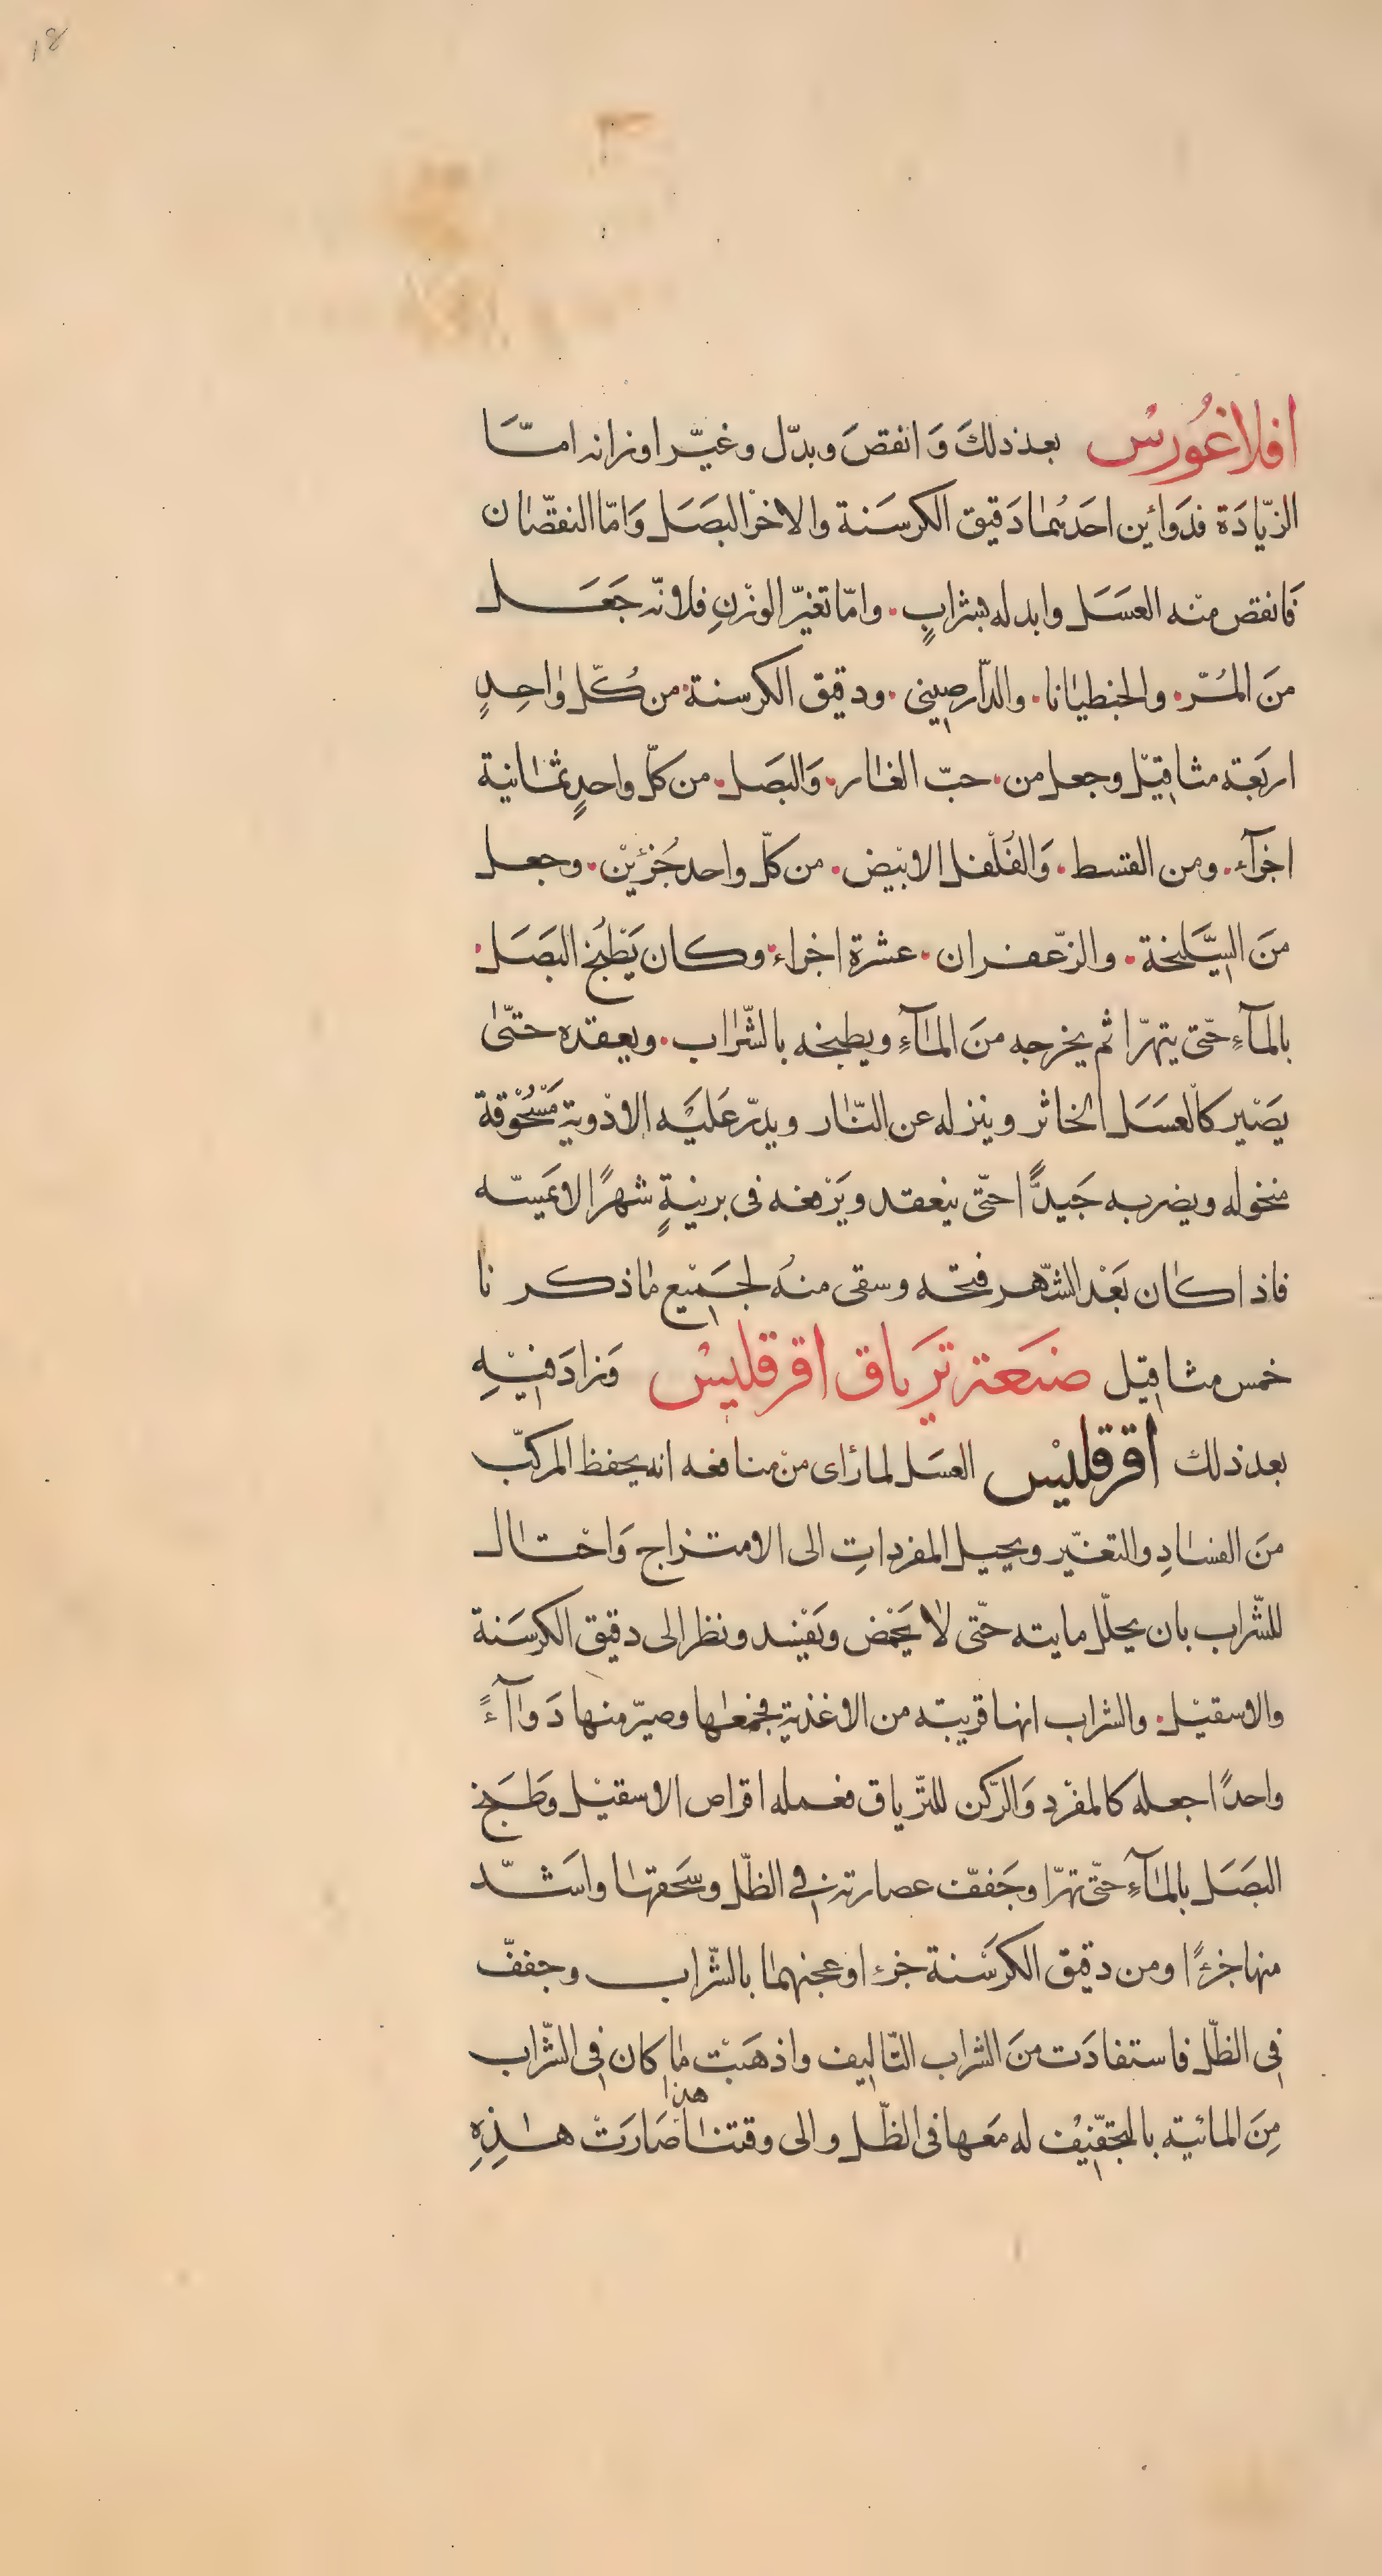 18
افلاغُورسْ بعد ذلكَ وَ انقصَ وبدّل وغيّر اوزانه امّا
الزّيادَة فدَوائين احَدهُما دَقيق الكرسَنة والاخرْ البَصَل وَامّا النقصّان
فَانقص منْه العسَسَل وابدله بشرابٍ. وامّا تغيّر الوزْنِ فلاونّه جَعَل
منَ المُرّ. والجنطيانا. والدّارصيني. ودقيق الكرسنة. من كُلّ واحِدٍ
اربَعَة مثاقيْل وجعل من. حبّ الغار. وَالبَصَل. من كلّ واحدٍ ثمَانية
اجزآء. ومن القسط. وَالفُلْفل الابْيض. من كلّ واحد جُزْئيْن. وجعل
منَ السَّليخة. والزّعفران. عشرة اجزاء. وكان يَطْبُخ البَصَل.
بالمآءِ حتّى يتهرّا ثم يخرجه منَ المآءِ ويطبخه بالشّراب. ويعقده حتّى
يَصْير كالعسَسَل الخاثر وينزله عن النّار ويدرّ عَليْه الادْوية مَسْحُوْقة
منخوله ويضربه جَيدًّا حتّى ينعقد ويَرْفعه فى برنيةٍ شهرًا لا يمَسّه
فاذا كان بَعْد الشّهر فتحه وسقى منهُ لجَميْع ماذكرنا
خمس مثاقيْل صَنعَة ترَياق اقرقليسْ وَزادَ فيْهِ
بعد ذلك اقرقليْس العسَل لما رَاى منْ منافعه انه يحفظ المركبّ
منَ الفسَادِ والتغيّير ويحيل المفرداتِ الى الامتزاج وَاحْتال
للشّراب بان يحلّل مايته حتّى لا يَحْمض وَيَفسْد ونظر الى دقيق الكرسَنة
والاسقيْل. والشراب انها قريبة من الاغذية فجمَعها وصيرّ منها دَواآءً
واحدًا جعله كالمفرْدِ وَالرّكن للترّياق فعمله اقراص الاسقيْل وطَبَخ
البَصَل بالمآءِ حتّى تهرّا وجَففّ عصارته في الظلّ وسَحقها واَشدّ
منها جزءًا ومن دقيق الكرسَْنة جزءا وعجنهما بالشّراب وجففّ
في الظلّ فاستفادَت منَ الشراب التّاليف واذهَبتْ ما كان في الشّراب
مِنَ المائية بالتجّفيْف له معَها فى الظّل والى وقتنا هذا صَارَتْ هذِهِ